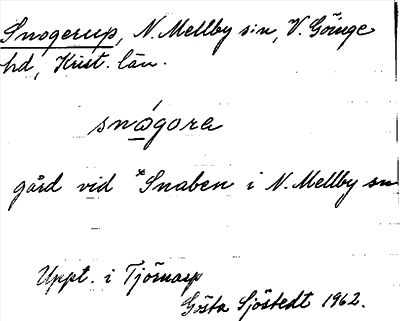 Snogerup, N. Mellby s:n, V. Göinge
hd, Krist. län.
snågora
gård vid *Snaben i N. Mellby sn
Uppt. i Tjörnarp
Gösta Sjöstedt 1962.